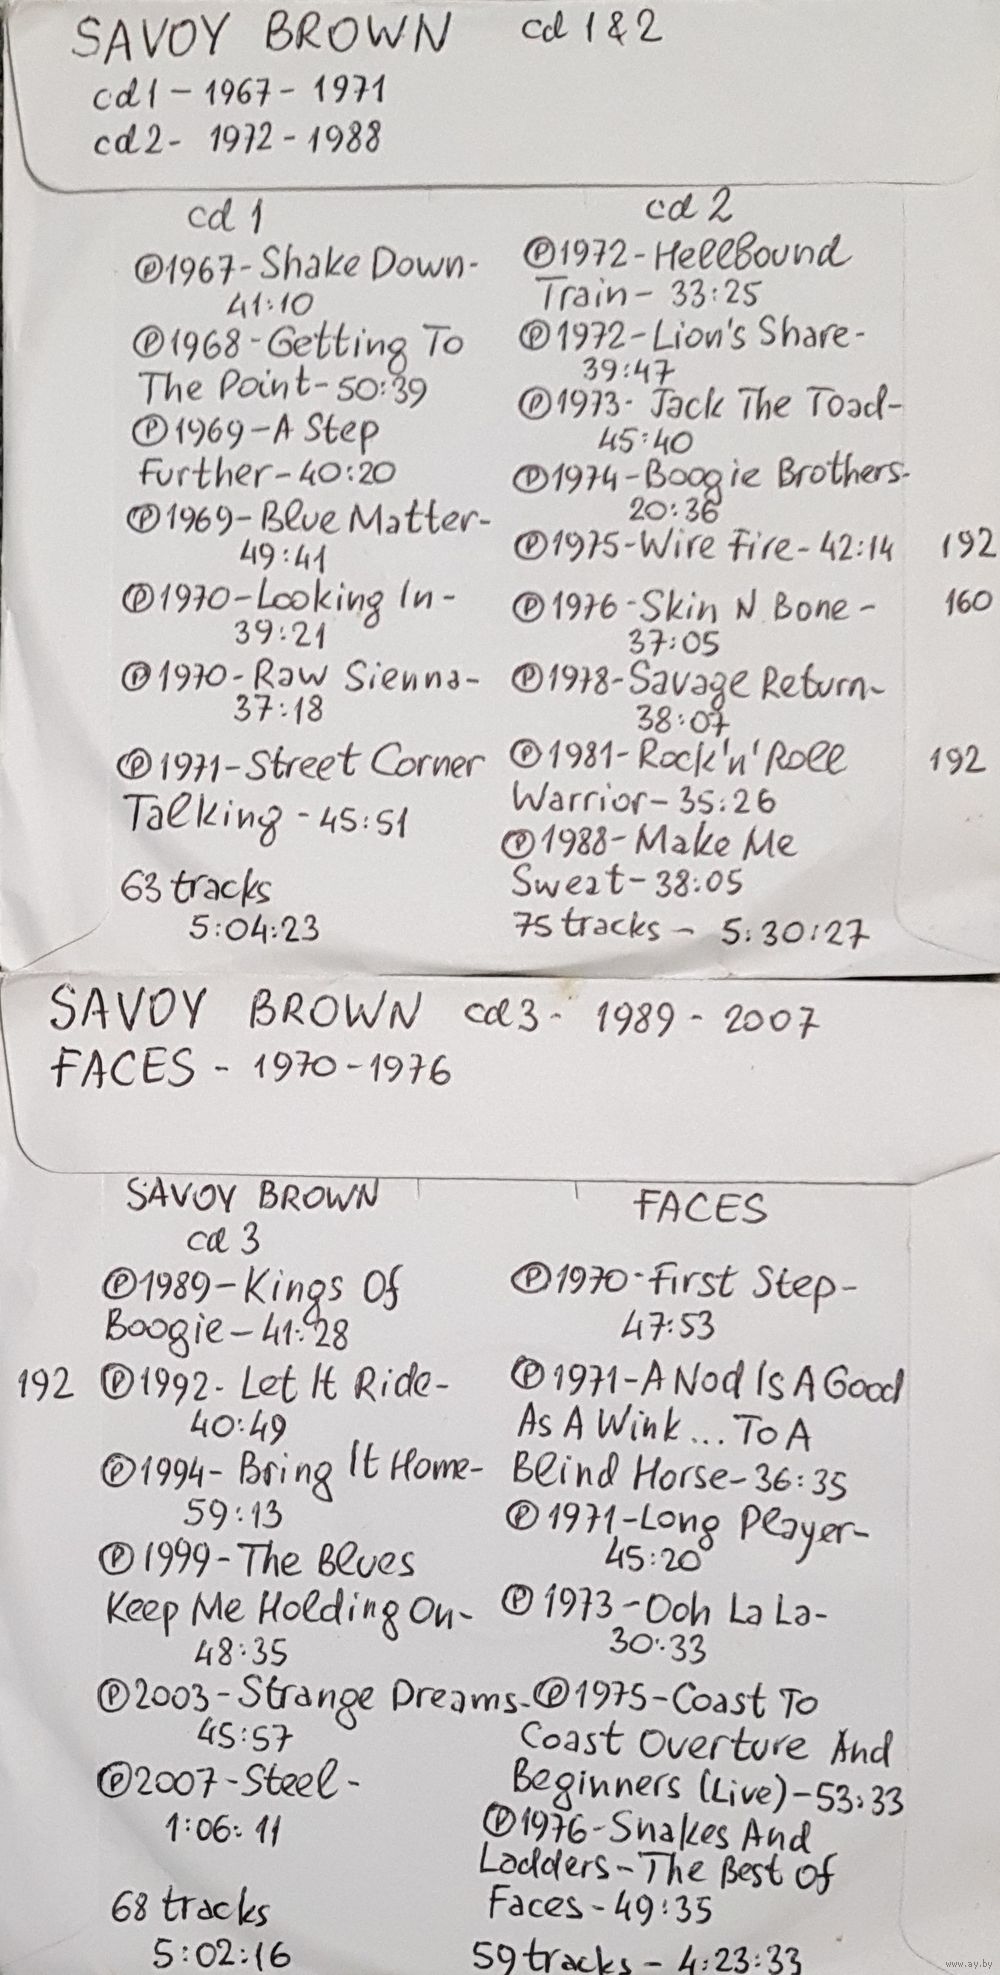 SAVOY BROWN cd 1 & 2
cd1 - 1967 - 1971
cd2 - 1972 - 1988
cd 1
Ⓟ1967-Shake Down-
41:10
Ⓟ1968-Getting To
The Point-50:39
Ⓟ1969-A Step
Further-40:20
Ⓟ1969-Blue Matter-
49:41
Ⓟ1970-Looking In-
39:21
Ⓟ1970-Raw Sienna-
37:18
Ⓟ1971-Street Corner
Talking - 45:51
63 tracks
5:04:23
cd 2
Ⓟ1972-HellBound
Train- 33:25
Ⓟ1972-Lion's Share-
39:47
Ⓟ1973- Jack The Toad-
45:40
Ⓟ1974-Boogie Brothers-
20:36
Ⓟ1975-Wire Fire-42:14 192
Ⓟ1976-Skin N Bone - 160
37:05
Ⓟ1978-Savage Return-
38:07
Ⓟ1981-Rock'n'Roll 192
Warrior-35:26
Ⓟ1988-Make Me
Sweat-38:05
75 tracks - 5:30:27
SAVOY BROWN cd3 - 1989 - 2007
FACES - 1970-1976
SAVOY BROWN
cd 3
Ⓟ1989-Kings Of
Boogie-41:28
192 Ⓟ1992- Let It Ride-
40:49
Ⓟ1994- Bring It Home-
59:13
Ⓟ1999-The Blues
Keep Me Holding On-
48:35
Ⓟ2003-Strange Dreams-
45:57
Ⓟ2007-Steel-
1:06:11
68 tracks
5:02:16
FACES
Ⓟ1970-First Step-
47:53
Ⓟ1971-A Nod Is A Good
As A Wink... To A
Blind Horse-36:35
Ⓟ1971-Long Player-
45:20
Ⓟ1973-Ooh La La-
30:33
Ⓟ1975-Coast To
Coast Overture And
Beginners (Live)-53:33
Ⓟ1976-Snakes And
Ladders-The Best Of
Faces-49:35
59 tracks - 4:23:33
www.ay.by